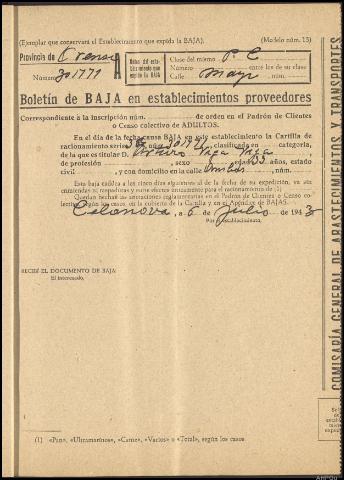 (Ejemplar que conservará el Establecimiento que expida la BAJA).
(Modelo núm. 15)
Provincia de Orense
Número 301771
Datos del esta-
blecimiento que
expide la BAJA
Clase del mismo P. C
Número entre los de su clase
Calle Mayr núm.
Boletín de BAJA en establecimientos proveedores
Correspondiente a la inscripción núm. de orden en el Padrón de Clientes
o Censo colectivo de ADULTOS.
En el día de la fecha causa BAJA en este establecimiento la Cartilla de
racionamiento serie , clasificada en categoría,
de la que es titular D. ,
de profesión , sexo , años, estado
civil , y con domicilio en la calle , núm.
Esta baja caduca a los cinco días siguientes al de la fecha de su expedición, va sin
enmiendas ni raspaduras y surte efectos únicamente para el racionamiento de: (1)
Quedan hechas las anotaciones reglamentarias en el Padrón de Clientes o Censo co-
lectivo según los casos, en la cubierta de la Cartilla y en el Apéndice de BAJAS.
Celanova, a 6 de Julio de 1943
Por el establecimiento,
RECIBÍ EL DOCUMENTO DE BAJA
El interesado,
(1) «Pan», «Ultramarinos», «Carne», «Varios» o «Total», según los casos.
COMISARÍA GENERAL DE ABASTECIMIENTOS Y TRANSPORTES